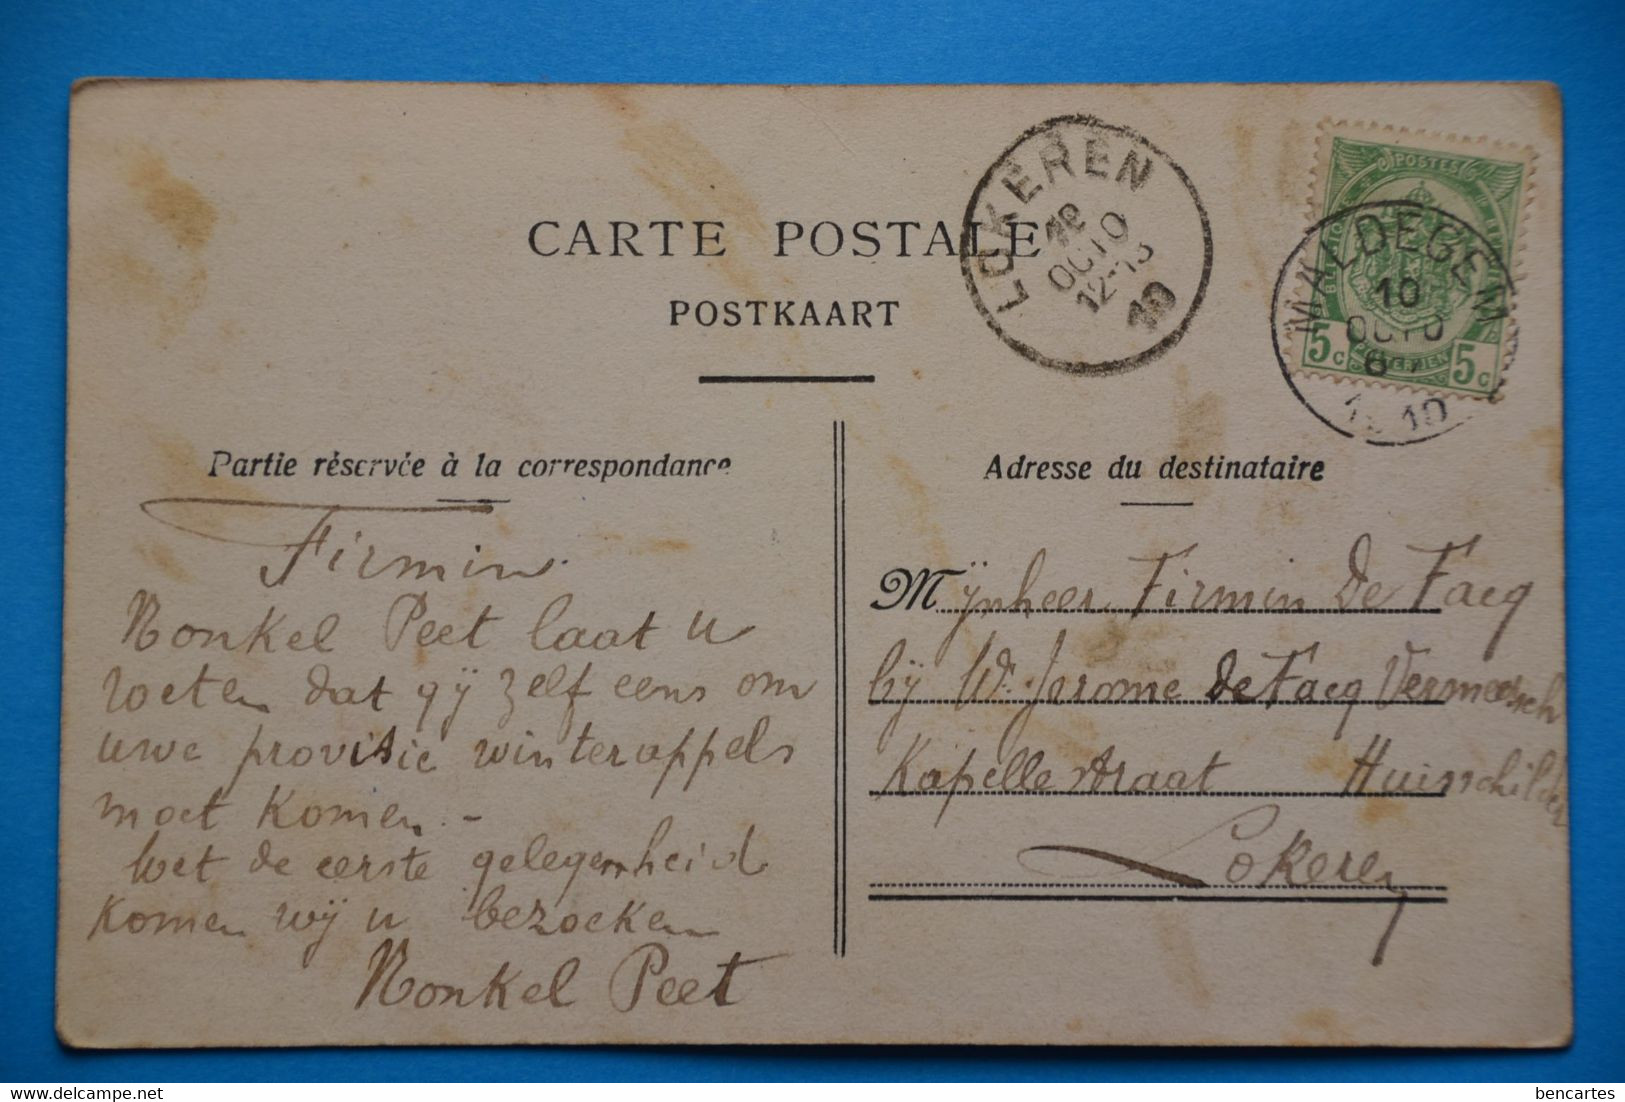 CARTE POSTALE
POSTKAART
LOKEREN
OCTO
12-13
10
POSTES
MALDEGEM
10
OCTO
10
5c 5c
Partie réservée à la correspondance
Firmin.
Nonkel Peet laat u
weten dat gÿ zelf eens om
uwe provisie winterappels
moet komen. -
Met de eerste gelegenheid
komen wÿ u bezoeken
Nonkel Peet
Adresse du destinataire
Mÿnheer Firmin De Facq
bÿ We Jerome de Facq Vermeersch
Kapelle straat Huisschilder
Lokeren
delcampe.net
bencartes